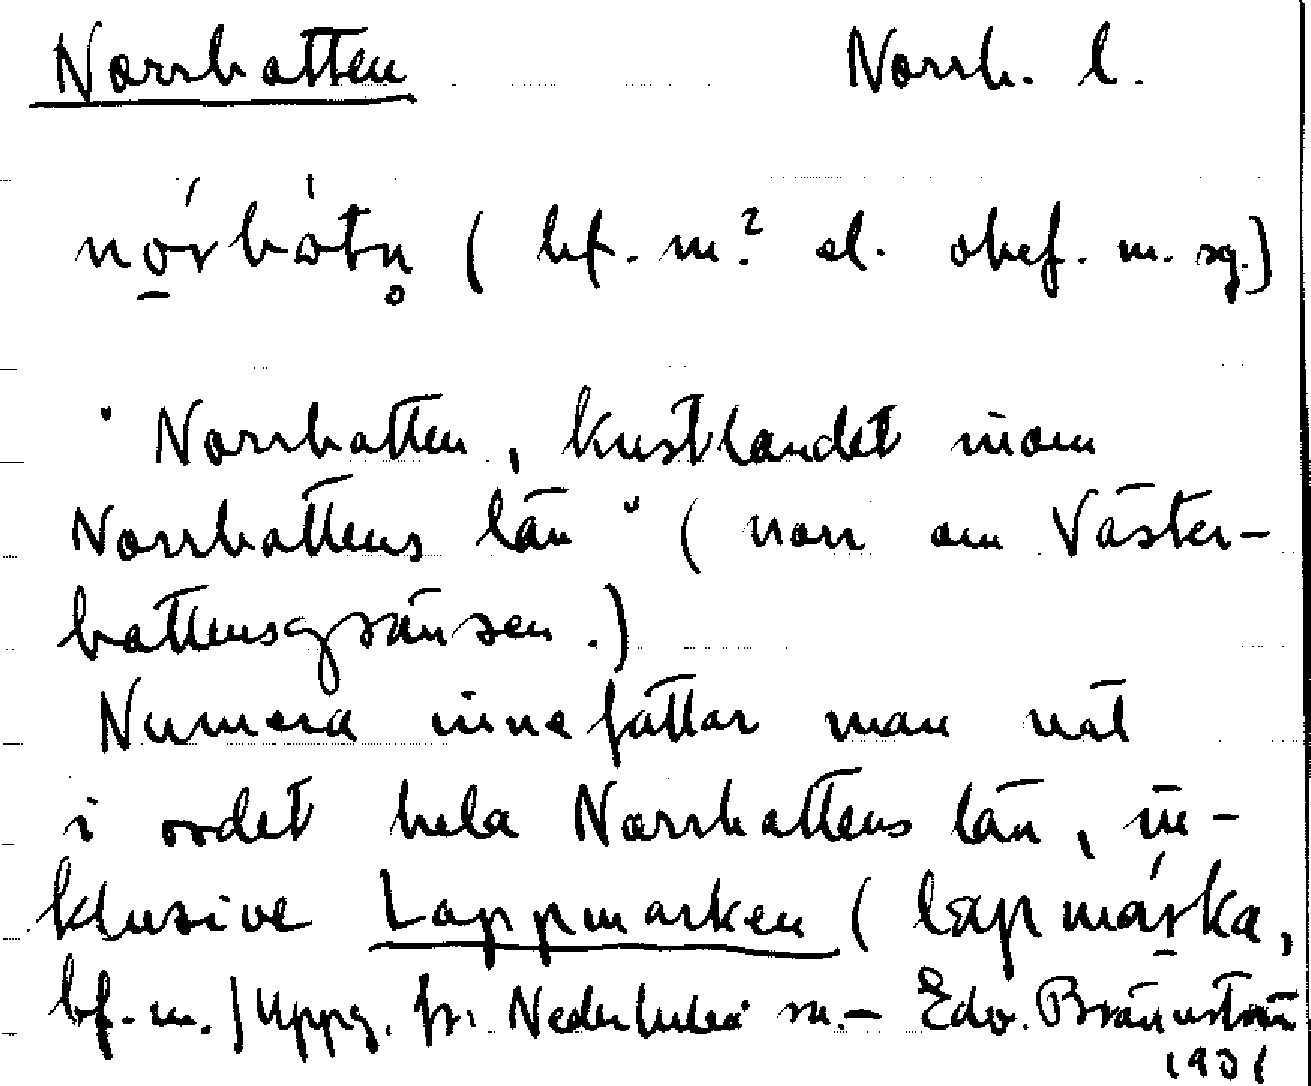 Norrbotten Norrb. l.
nórbòtn̥ (bf. m.? el. obef. m. sg.)
"Norrbotten, kustlandet inom
Norrbottens län" (norr om Väster-
bottensgränsen.)
Numera innefattar man nåt
i ordet hela Norrbottens län, in-
klusive Lappmarken (lapmárka,
bf. m.) Uppg. fr. Nederluleå sn. – Edv. Brännström
1931